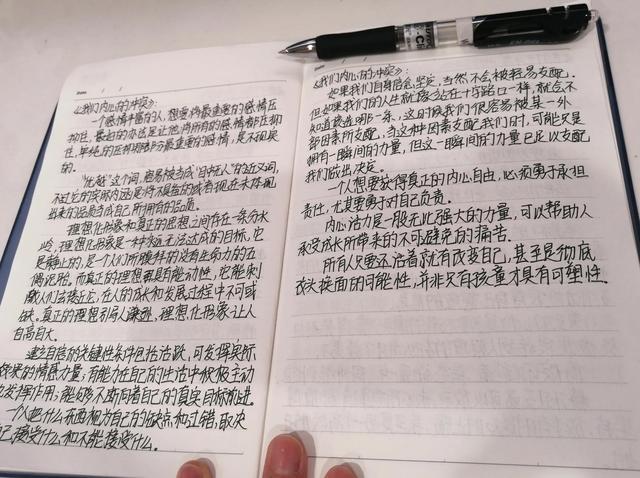 《我们内心的冲突》：
一个感情丰富的人，想要将最重要的感情压
抑住，最好的办法是让他将所有的感情都压抑
住，单纯的压抑某部分最重要的感情，是不现实
的。
"优越"这个词，容易被当成"目中无人"的近义词，
不过它的实际内涵是将不具备的或者现在未体现
出来的品质当成自己所拥有的品质。
理想化形象和真正的思想之间存在一条分水
岭，理想化形象是一种永远无法达成的目标，它
是静止的，是个人们所膜拜的没有生命力的
偶像。而真正的理想都具有能动性，它能刺
激人们去接近它，在人的成长和发展过程中不可或
缺。真正的理想引导人谦逊，理想化形象让人
自高自大。
建立自信的关键性条件包括活跃，可发挥实际
的情感力量，有能力在自己的生活中积极主动
发挥作用，能够不断向着自己的真实目标前进。
一个人把什么东西视为自己的缺点和过错，取决
接受什么和不能接受什么。
《我们内心的冲突》：
如果我们自身信念坚定，当然不会被轻易支配。
但如果我们的人生就像站在十字路口一样，就会不
知道该选哪一条，这时候我们很容易被某一外
部因素所支配，当这种因素支配我们时，可能只是
拥有一瞬间的力量，但这一瞬间的力量已足以支配
我们做出决定。
一个人想要获得真正的内心自由，必须勇于承担
责任，尤其要勇于对自己负责。
内心活力是一股无比强大的力量，可以帮助人
承受成长所带来的不可避免的痛苦。
所有人只要还活着就有改变自己，甚至是彻底
改头换面的可能性，并非只有孩童才具有可塑性。